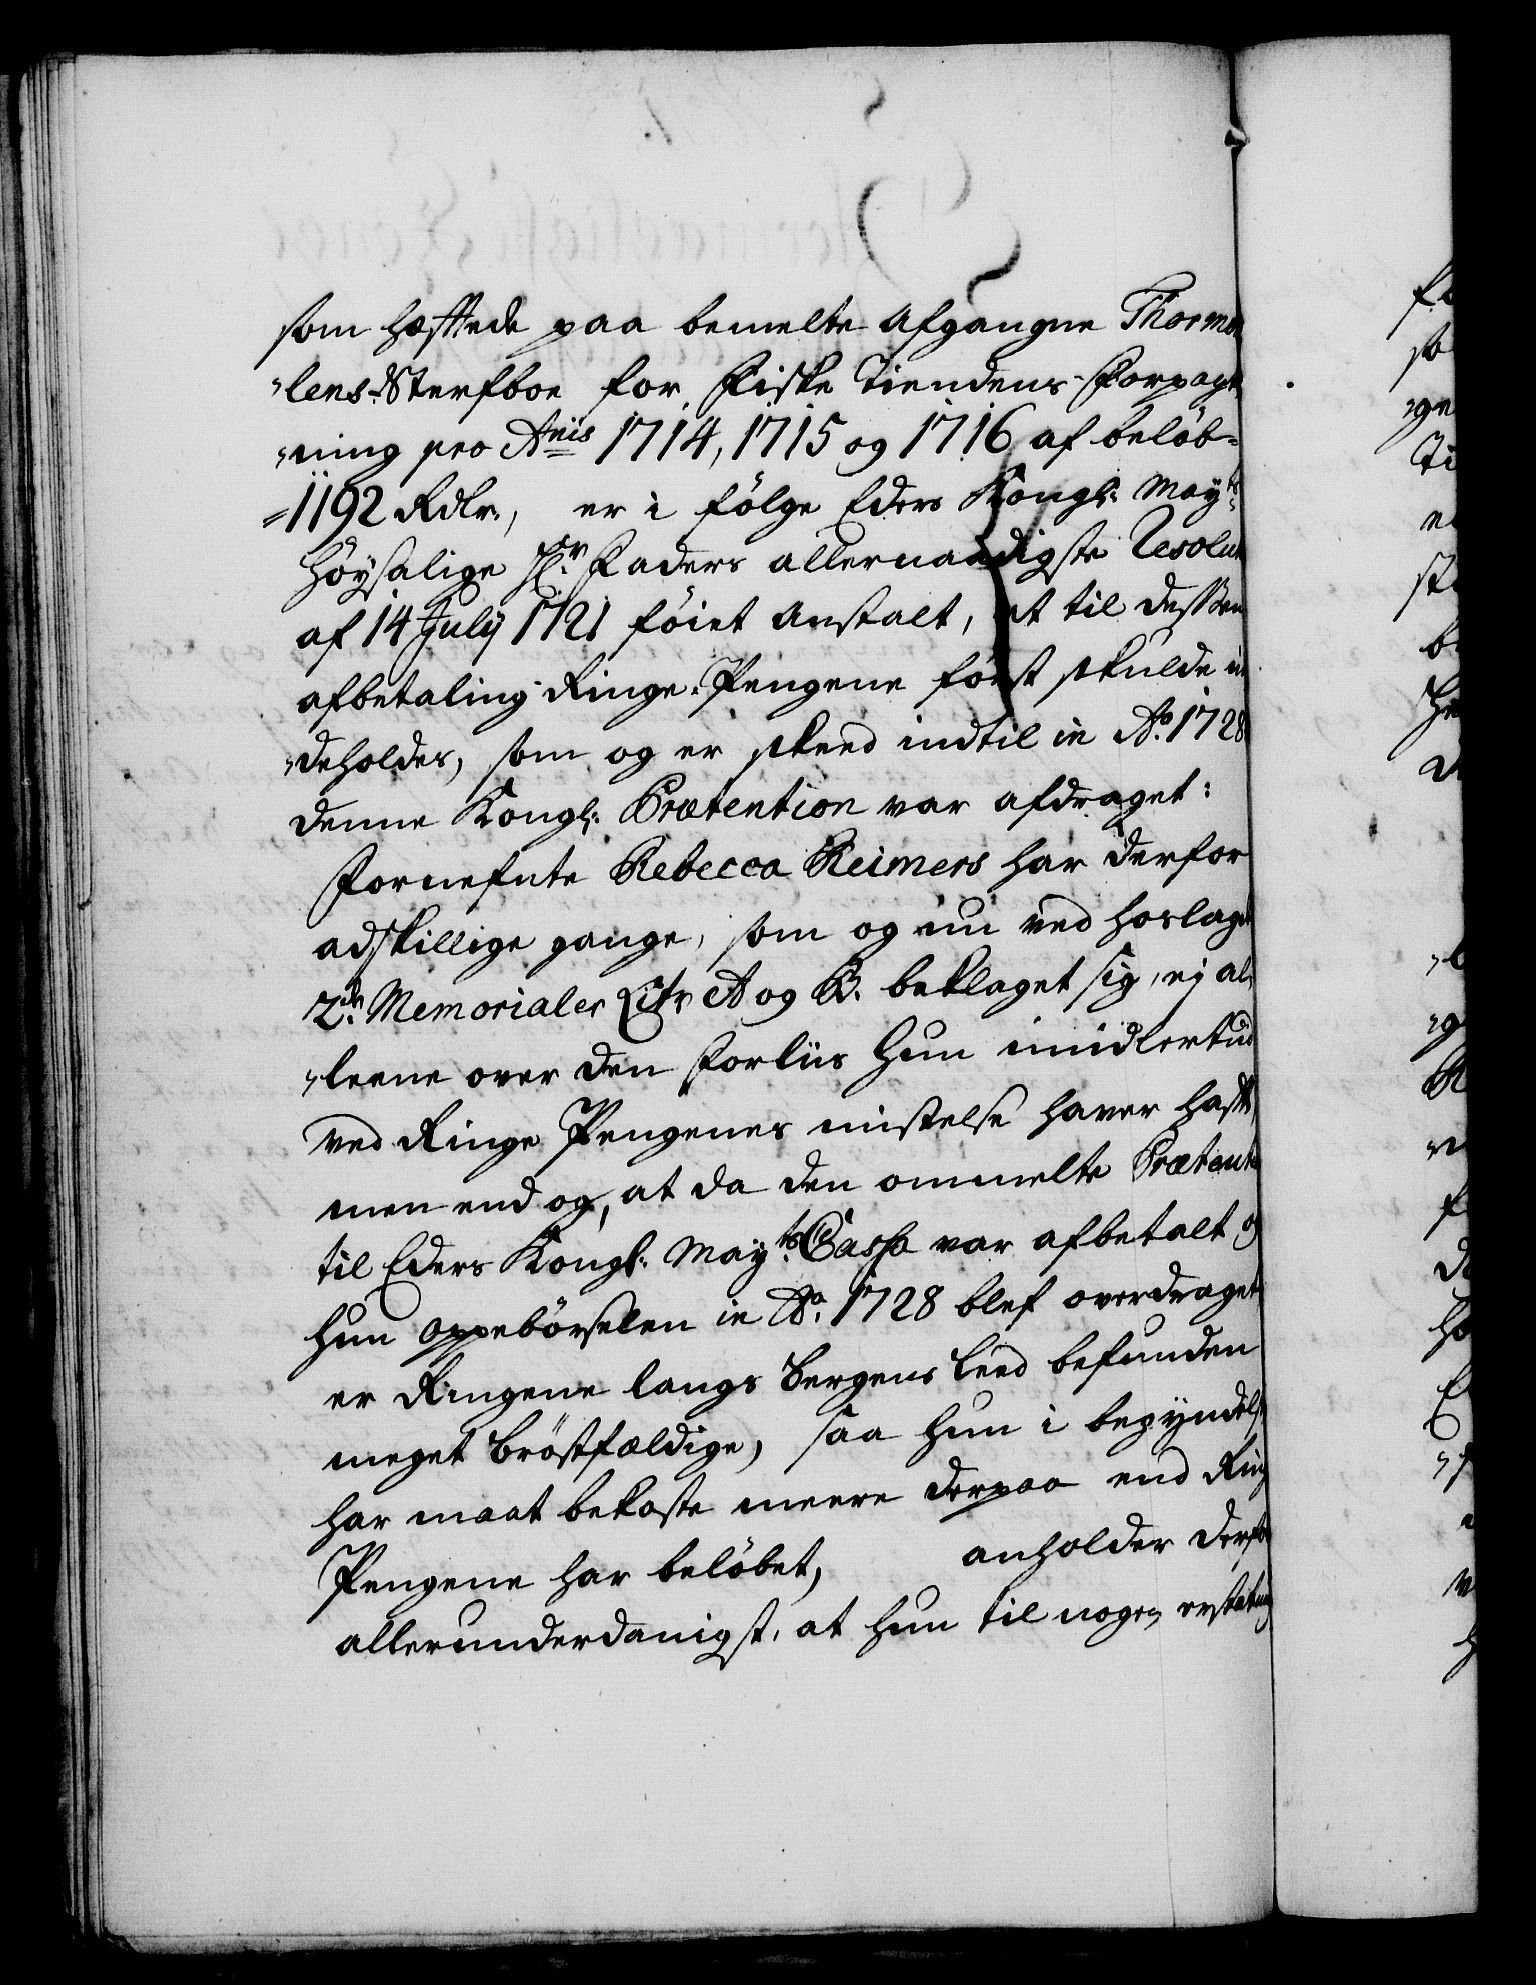 som hæfftede paa bemelte Afgangne Thormø
„lens-Sterfboe for Fiske Tiendens-Forpagt
„ning pro Aniis 1714, 1715 og 1716 af beløb-
=1192 Rdlr, er i følge Eders Kongl: May:ts
Høysalige Hr Faders allernaadigste Resolut
af 14 July 1721 føiet Anstalt, at til dessen
afbetaling Ringe-Pengene først skulde in
„deholdes, som og er skeed indtil in Ao. 1728
denne Kongl: Prætention var afdraget:
Fornefnte Rebecca Reimers har derfor
adskillige gange, som og nu ved hoslagt
2de Memorialer Litr A og B. beklaget sig, ej al
„leene over den Forliis hun imidlertiid
ved Ringe Pengenes mistelse haver hafft,
men end og, at da den ommelte Prætent
til Eders Kongl: May:ts Cassa var afbetalt og
hun oppebørselen in Ao. 1728 blef overdraget
er Ringene langs Bergens Leed befunden
meget brøstfældige, saa hun i begyndels
har maat bekoste meere derpaa end Ring
Pengene har beløbet, anholder derfor
allerunderdanigst, at hun til nogen erstatning